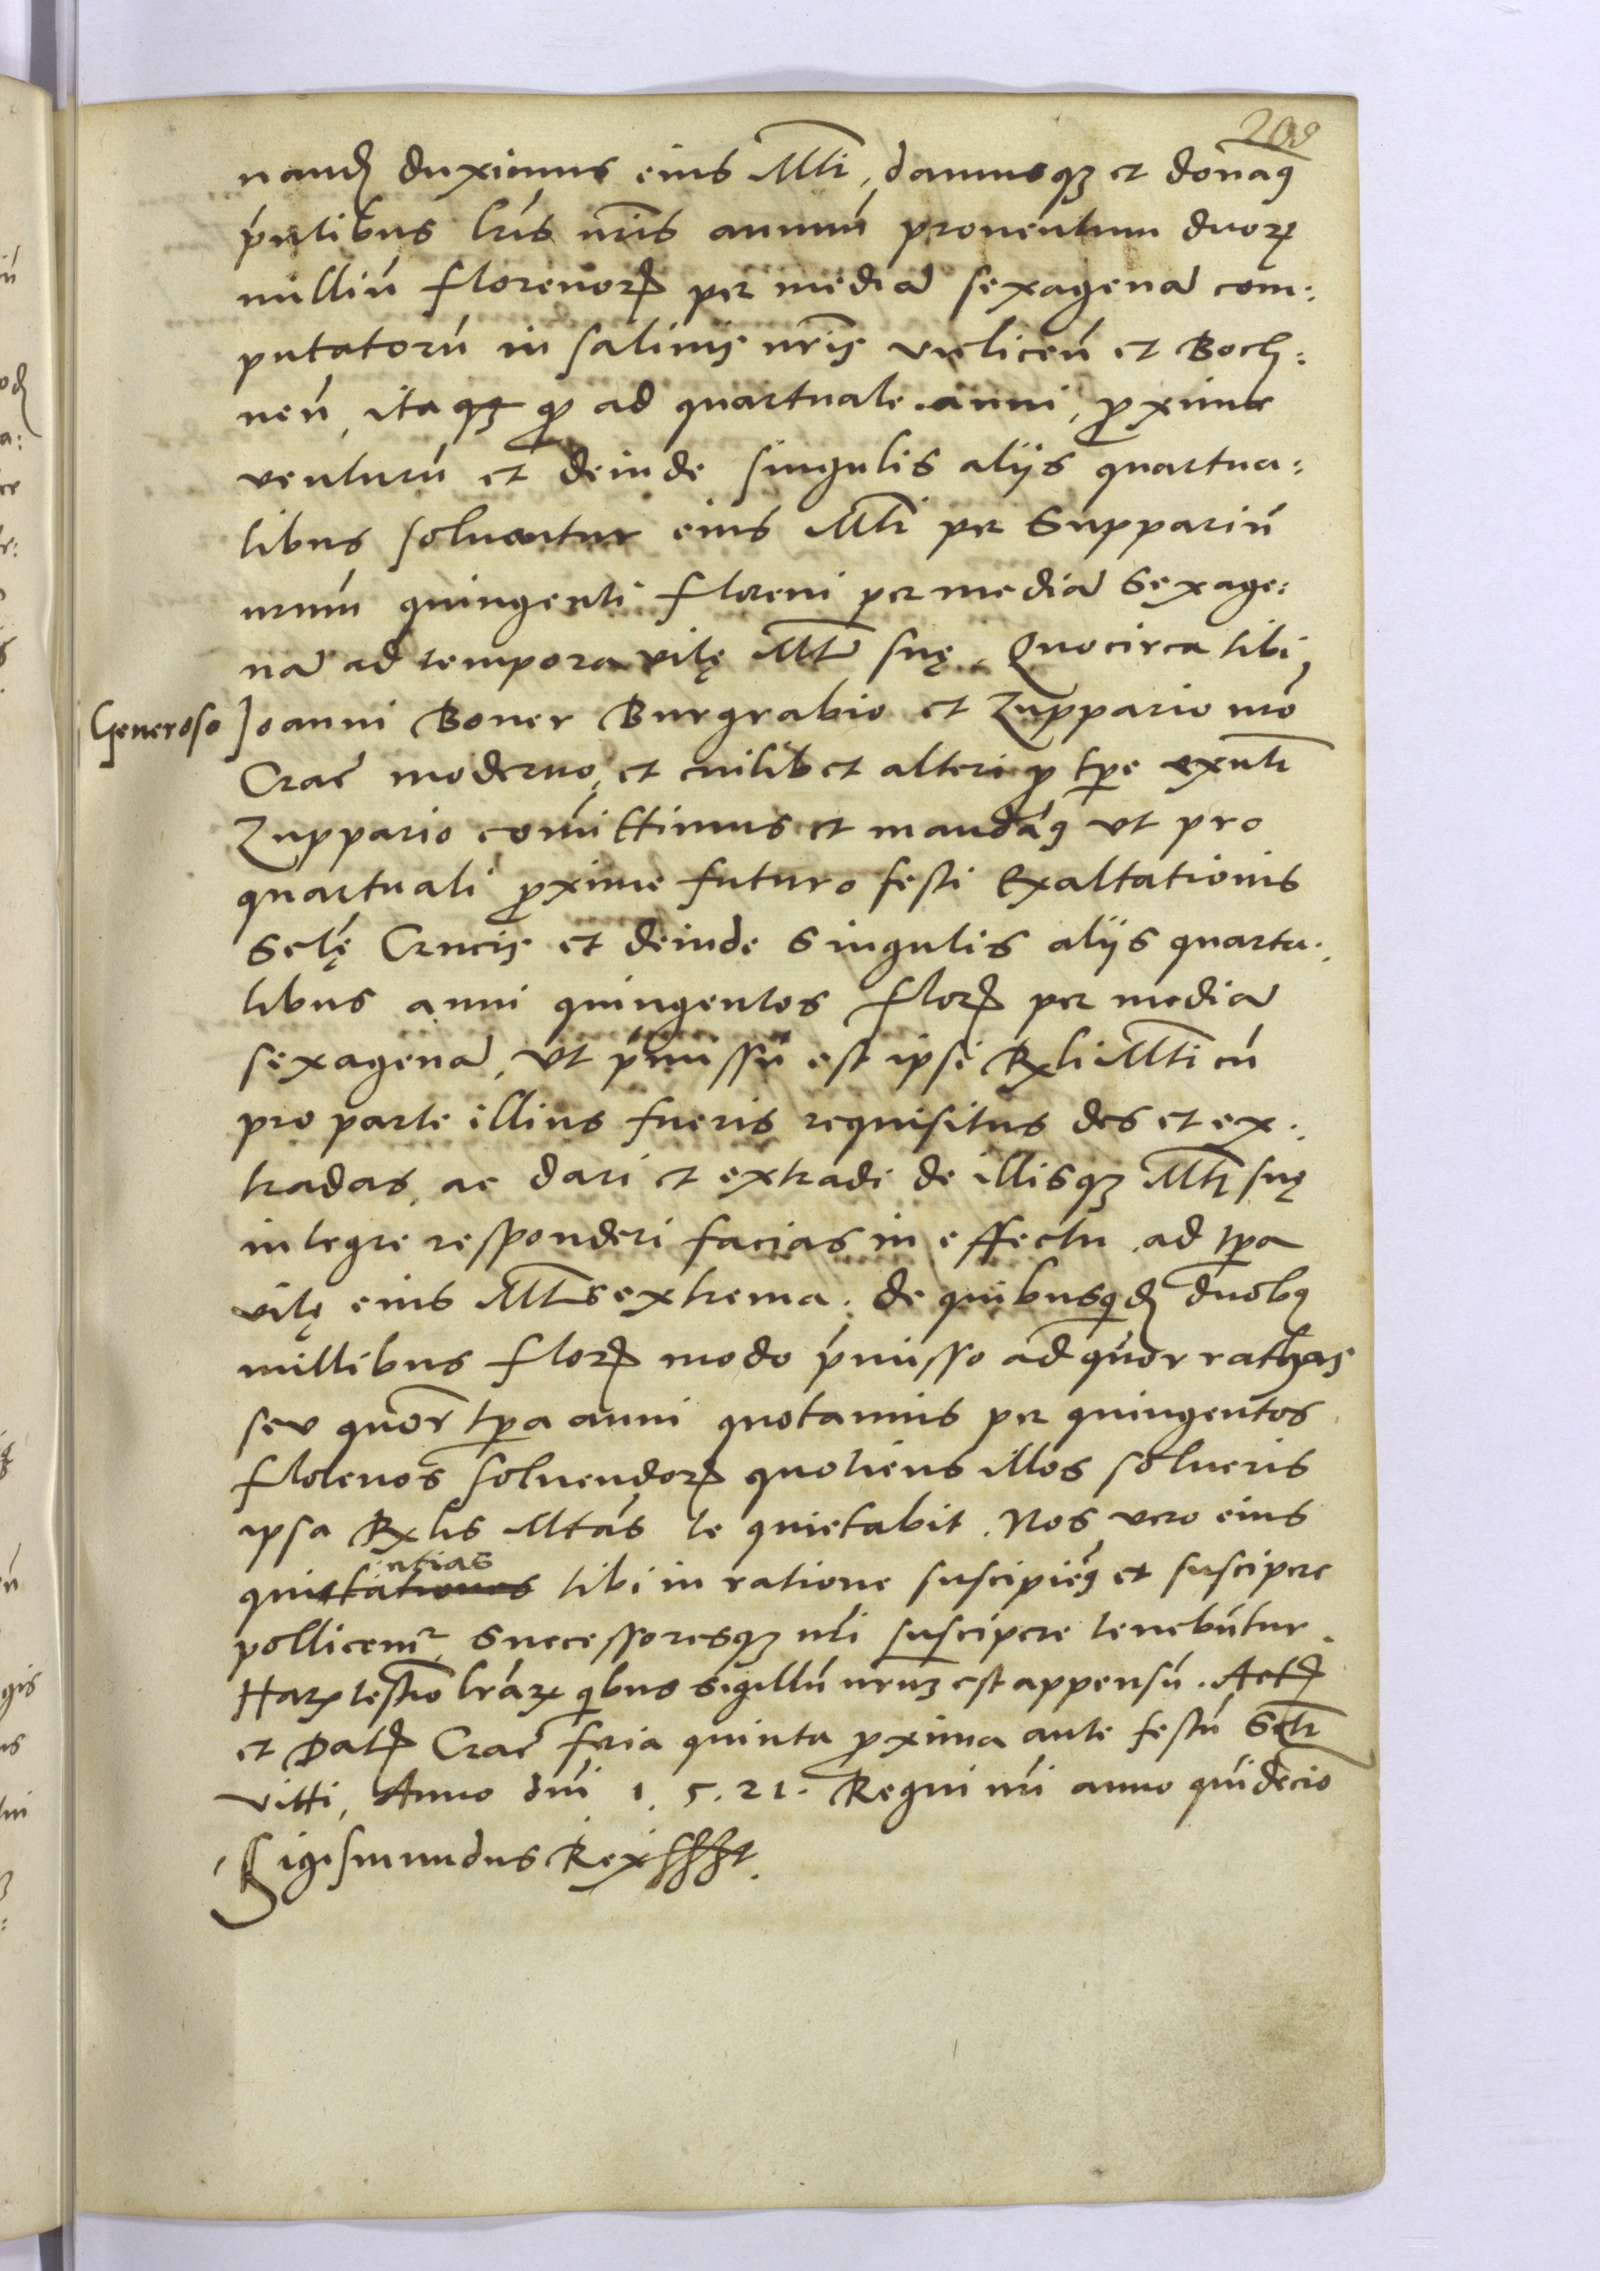 209
nand duximus eius Mti, damusqꝫ et donaꝰ
pn̄tibus lr̄is nr̄is annuū prouentum duoꝝ
milliū florenorꝝ per mediā sexagenā com:
putatorū in salinis nr̄is vieliceñ et Boch:
neñ, ita qꝫ ꝓ ad quartuale anni, ꝓxime
venturū et deinde singulis alijs quartua:
libus soluantur eius Mti per Suppariū
nr̄um quingenti floreni per mediā Sexage:
nā ad tempora vitę Mtis suę, Quocirca tibi
Generoso Joanni Boner Burgrabio et Zuppario nr̄o
Crac̄ moderno, et cuilibet alteri ꝓ tp̄e exn̄ti
Zuppario com̄ittimus et mandāꝰ vt pro
quartuali ꝓxime futuro festi Exaltationis
Sctę Crucis et deinde Singulis alijs quartu:
libus anni quingentos florꝭ per mediā
sexagenā, vt p̄missū est ipsi Rgli Mti cū
pro parte illius fueris requisitus des et ex:
tradas, ac dari et extradi de illisqꝫ Mti suę
integre responderi facias in effectu ad tp̄a
vitę eius Mtis extrema. de quibusqd duobꝰ
millibus florꝭ modo p̄misso ad quor rathas
seu quor tp̄a anni quotannis per quingentos
florenos soluendorꝭ quotiens illos solueris
ipsa Rglis Mtas te quietabit. Nos vero eius
quittationes ietatias tibi in ratione suscipiēꝰ et suscipere
pollicemr, Successoresqꝫ nr̄i suscipere tenebūtur.
Haꝝ testio lr̄aꝝ qbus sigillū nrūꝫ est appensū. Actꝭ
et Datꝭ Crac̄ feria quinta ꝓxima ante festū Scti
Vitti, Anno dn̄i 1.5.21. Regni nr̄i anno quīdecio
Sigismundus Rex sst.